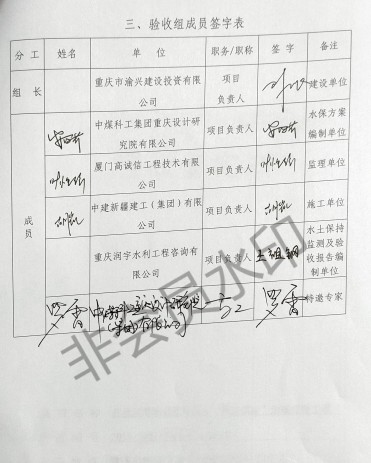 三、验收组成员签字表
分工 姓名 单 位 职务/职称 签 字 备注
组 长 重庆市渝兴建设投资有限公司 项目负责人 建设单位
成员
中煤科工集团重庆设计研究院有限公司 项目负责人 水保方案编制单位
厦门高诚信工程技术有限公司 项目负责人 监理单位
中建新疆建工(集团)有限公司 项目负责人 施工单位
重庆润宇水利工程咨询有限公司 水土保持监测及验收报告编制单位
罗雷 罗雷 特邀专家
非会员水印